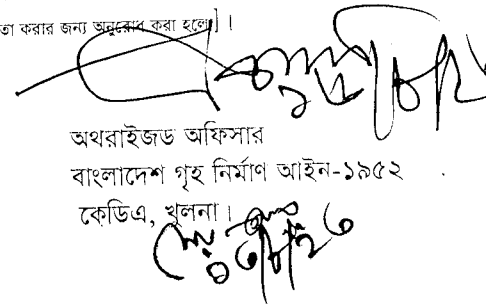 তা করার জন্য অনুরোধ করা হলো] ।
অথরাইজড অফিসার
বাংলাদেশ গৃহ নির্মাণ আইন-১৯৫২
কেডিএ, খুলনা।